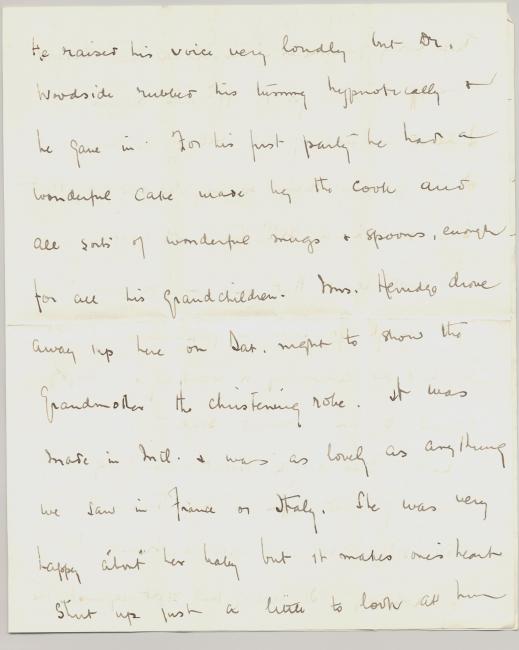 He raised his voice very loudly but Dr.
Woodside rubbed his tummy hypnotically &
he gave in. For his first party he had a
wonderful cake made by the cook and
all sorts of wonderful mugs & spoons, enough
for all his grandchildren. Mrs. drove
away up here on Sat. night to show the
Grandmother the christening robe. It was
made in Mtl. & was as lovely as anything
we saw in France or Italy. She was very
happy "about" her baby but it makes one's heart
shut up just a little to look at him